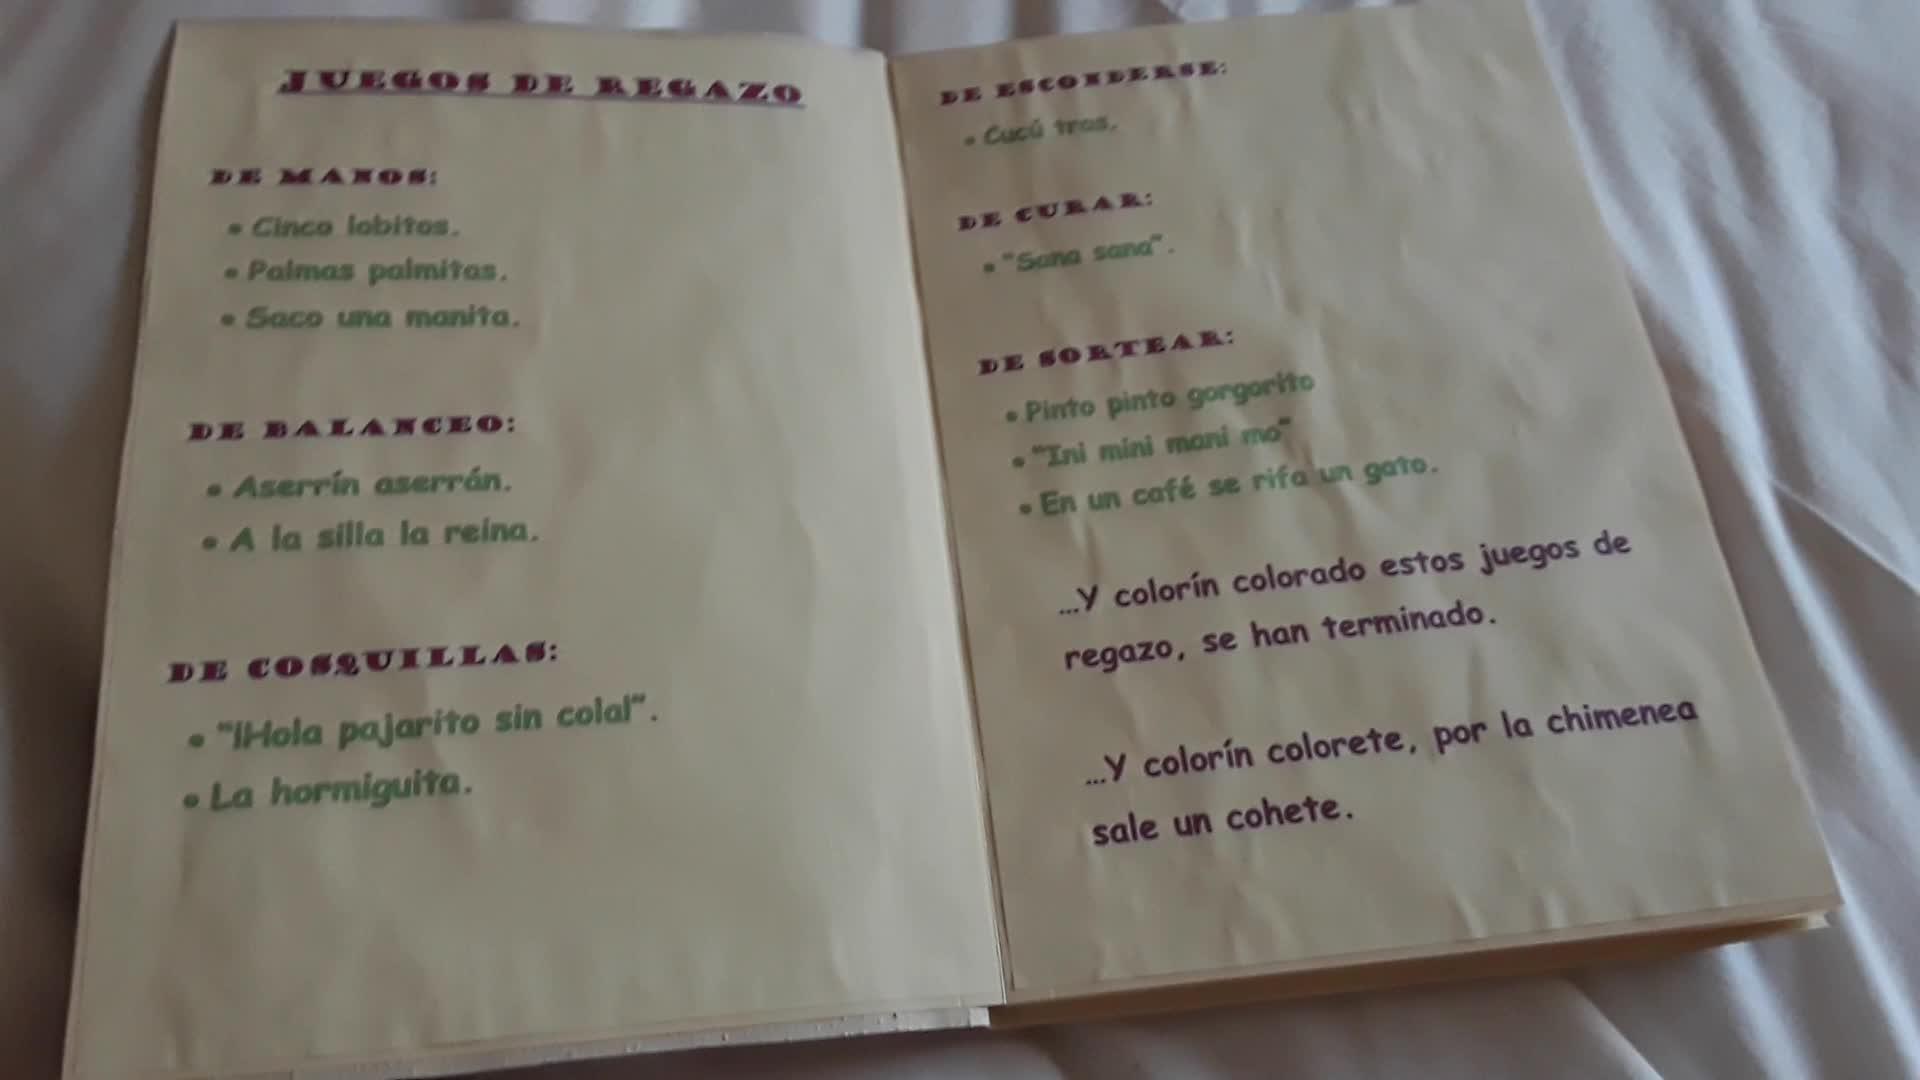 JUEGOS DE REGAZO
DE MANOS:
• Cinco lobitos.
• Palmas palmitas.
• Saco una manita.
DE BALANCEO:
• Aserrín aserrán.
• A la silla la reina.
DE COSQUILLAS:
• "¡Hola pajarito sin cola!".
• La hormiguita.
DE ESCONDERSE:
• Cucú tras.
DE CURAR:
• "Sana sana".
DE SORTEAR:
• Pinto pinto gorgorito
• "Ini mini mani mo"
• En un café se rifa un gato.
...Y colorín colorado estos juegos de
regazo, se han terminado.
...Y colorín colorete, por la chimenea
sale un cohete.